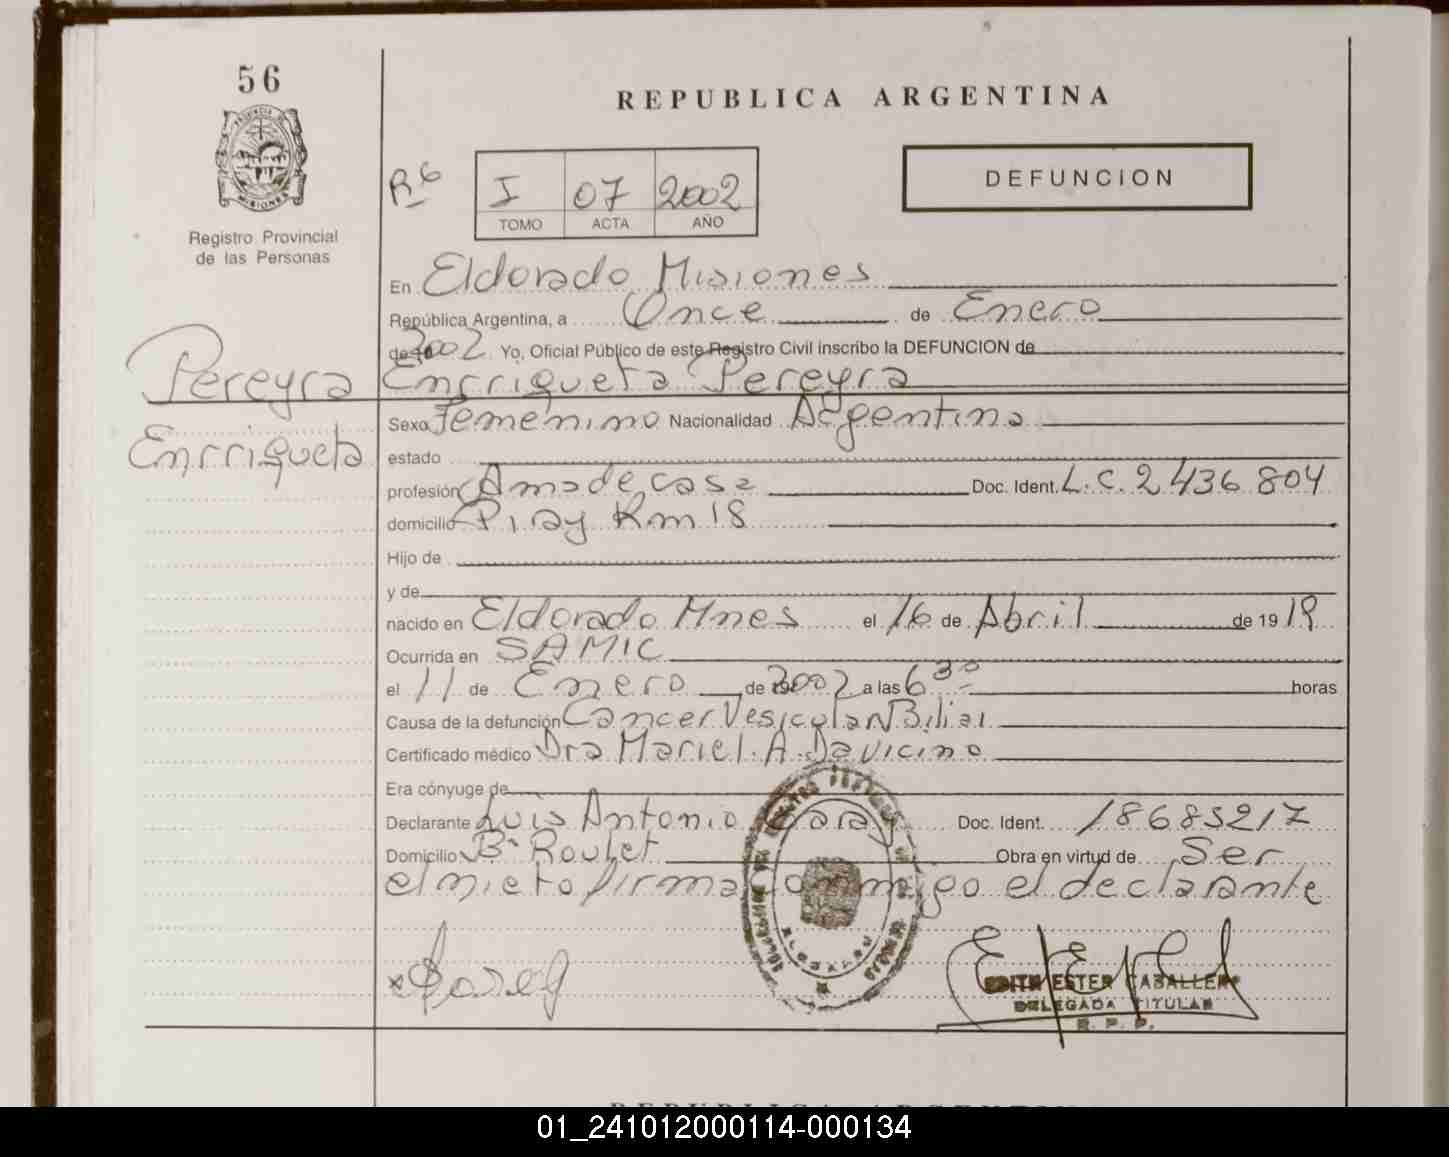 56
REPUBLICA ARGENTINA
PROVINCIA DE
MISIONES
Registro Provincial
de las Personas
Rº 6
I 07 2002
TOMO ACTA AÑO
DEFUNCION
En Eldorado Misiones
República Argentina, a Once de Enero
de 2002 Yo, Oficial Público de este Registro Civil inscribo la DEFUNCION de
Pereyra Enrriqueta Pereyra
Enrriqueta
Sexo Femenino Nacionalidad Argentina
estado
profesión Ama de casa Doc. Ident. L.C. 2436804
domicilio Piray Km 18
Hijo de
y de
nacido en Eldorado Mnes el 16 de Abril de 1919
Ocurrida en SAMIC
el 11 de Enero de 2002 a las 6 30 horas
Causa de la defunción Cancer Vesicular Biliar
Certificado médico Dra Mariel A. Davicino
Era cónyuge de
Declarante Luis Antonio Garay Doc. Ident. 18683217
Domicilio Bº Roulet Obra en virtud de Ser
el nieto firma conmigo el declarante
EDITH ESTER CABALLERO
DELEGADA TITULAR
R. P. P.
01_241012000114-000134